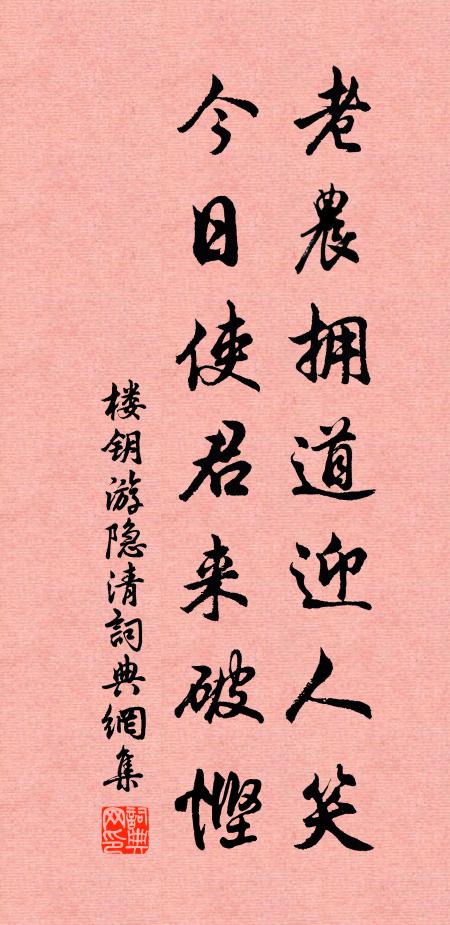 老農拥道迎人笑
今日使君来破慳
楼钥游隐清詞典網集
詞典网印